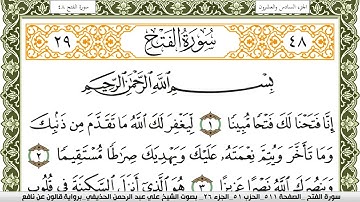 الجزء السادس والعشرون
سورة الفتح ٤٨
٤٨ سُورَةُ الْفَتْحِ ٢٩
بِسْمِ اللَّهِ الرَّحْمَٰنِ الرَّحِيمِ
إِنَّا فَتَحْنَا لَكَ فَتْحًا مُّبِينًا ١ لِّيَغْفِرَ لَكَ اللَّهُ مَا تَقَدَّمَ مِن ذَنۢبِكَ
وَمَا تَأَخَّرَ وَيُتِمَّ نِعْمَتَهُۥ عَلَيْكَ وَيَهْدِيَكَ صِرَٰطًا مُّسْتَقِيمًا ٢
وَيَنصُرَكَ اللَّهُ نَصْرًا عَزِيزًا ٣ هُوَ الَّذِي أَنزَلَ السَّكِينَةَ فِي قُلُوبِ
سورة الفتح_الصفحة ٥١١_الحزب ٥١_الجزء ٢٦_بصوت الشيخ علي عبد الرحمن الحذيفي_برواية قالون عن نافع